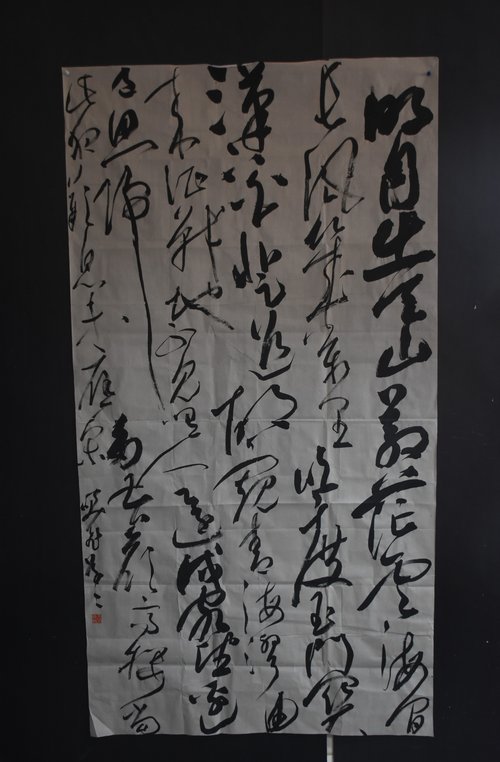 明月出天山蒼茫雲海間
長風幾萬里吹度玉門關
漢下白登道胡窺青海灣由
来征戰地不見有人還戍客望邊
色思歸多苦顏高樓當
此夜歎息未應閑